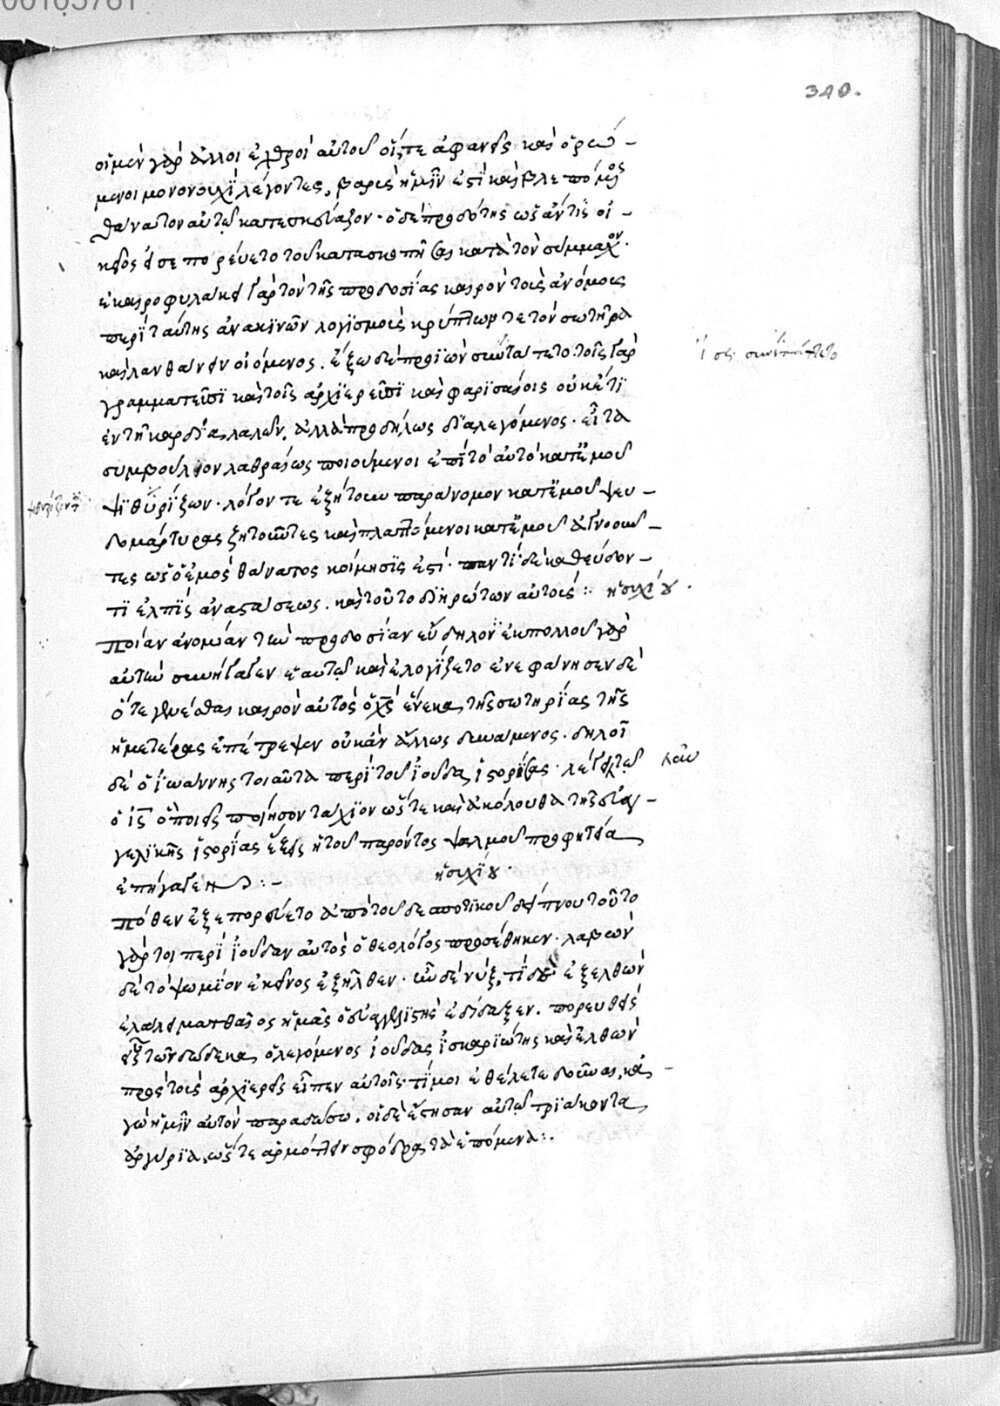 00105761
340.
οἱ μὲν γὰρ ἄλλοι ἐχθροὶ αὐτοῦ οἵ τε ἀφανεῖς καὶ ὁρώ-
μενοι μονονουχὶ λέγοντες, βαρὺς ἡμῖν ἐστὶ καὶ βλεπόμενος
θάνατον αὐτῷ κατεσκεύαζον· ὁ δὲ προδότης ὡς ἄν τις οἰ-
κεῖος εἰσεπορεύετο τοῦ κατασκοπῆσαι κατὰ τὸν σύμμαχον·
ἐκαιροφυλάκει γὰρ τὸν τῆς προδοσίας καιρὸν τοῖς ἀνόμοις
περὶ ταύτης ἀνακινῶν λογισμοῖς κρύπτων τε τὸν σωτῆρα
καὶ λανθάνειν οἰόμενος. ἔξω δὲ προϊὼν συνῄπτετο τοῖς γὰρ
ἴσως συνήπτετο
γραμματεῦσι καὶ τοῖς ἀρχιερεῦσι καὶ φαρισαίοις οὐκέτι
ἐν τῇ καρδίᾳ λαλῶν, ἀλλὰ προδήλως διαλεγόμενος· εἶτα
συμβούλιον λαθραίως ποιούμενοι ἐπιτοαυτὸ κατ' ἐμοῦ
ψιθυρίζων· λόγον τε ἐξήτουν παράνομον κατ' ἐμοῦ ψευ-
δομάρτυρας ζητοῦντες καὶ πλαττόμενοι κατ' ἐμοῦ ἀγνοοῦ-
τες ὡς ὁ ἐμὸς θάνατος κοίμησις ἐστί· παντὶ δὲ καθεύδον-
τι ἐλπὶς ἀναστάσεως. καὶ τοῦτο διηρώτων αὐτούς:· ἡσυχίου·
ποίαν ἀνομίαν τὴν προδοσίαν εὔδηλον ἐκ πολλοῦ γὰρ
αὐτὴν συνήγαγεν ἑαυτῷ καὶ ἐλογίζετο ἐνεφάνησεν δὲ
ὅτε γενέσθαι καιρὸν αὐτὸς ὁ χς ἕνεκα τῆς σωτηρίας τῆς
ἡμετέρας ἐπέτρεψεν οὐκ ἂν ἄλλως δυνάμενος· δηλοῖ
δὲ ὁ ἰωάννης τοιαῦτα περὶ τοῦ ἰούδα ἱστορήσας· λέγει αὐτῷ
ὁ ις ὃ ποιεῖς ποίησον τάχιον ὥστε καὶ ἀκόλουθα τῆς εὐαγ-
γελικῆς ἱστορίας ἑξῆς ἡ τοῦ παρόντος ψαλμοῦ προφητεία
ἐπήγαγεν:-
ἡσυχίου·
πόθεν ἐξεπορεύετο ἀπὸ τοῦ δεσποτικοῦ δείπνου τοῦτο
γάρ τοι περὶ ἰούδαν αὐτὸς ὁ θεολόγος προσέθηκεν· λαβὼν
δὲ τὸ ψωμίον ἐκεῖνος ἐξῆλθεν· ἦν δὲ νύξ, τί δὲ ἐξελθὼν
ἐλάλει ματθαῖος ἡμᾶς ὁ εὐαγγελιστὴς ἐδίδαξεν. πορευθεὶς
εἷς τῶν δώδεκα, ὁ λεγόμενος ἰούδας ἰσκαριώτης καὶ ἐλθὼν
πρὸς τοὺς ἀρχιερεῖς εἶπεν αὐτοῖς· τί μοι θέλετε δοῦναι, κἀ-
γὼ ὑμῖν αὐτὸν παραδώσω. οἱ δὲ ἔστησαν αὐτῷ τριάκοντα
ἀργύρια, ὥστε ἁρμόττειν σφόδρα τὰ ἑπόμενα:·